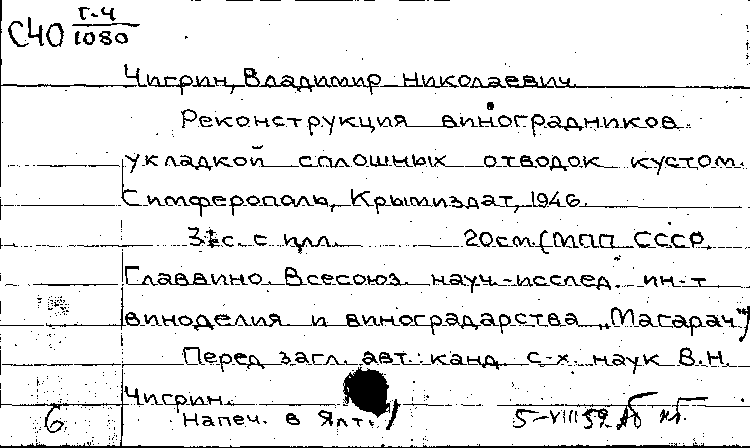 С40 Г-4/1080
Чигрин, Владимир Николаевич.
Реконструкция виноградников
укладкой сплошных отводок кустом.
Симферополь, Крымиздат, 1946.
с. с илл. 20см. (МПП СССР.
Главвино. Всесоюз. науч.-исслед. ин-т
виноделия и виноградарства „Магарач")
Перед загл. авт.: канд. с-х. наук В.Н.
Чигрин.
Напеч. в
6 5-VIII 59